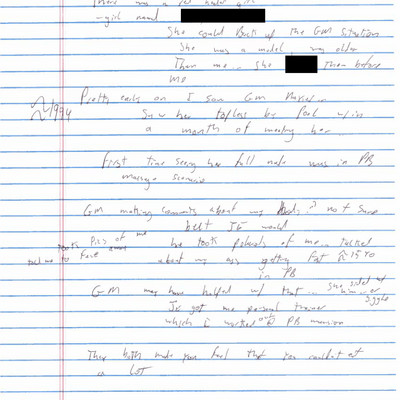 - girl named
She could Back up the GM situation
She was a model.. was older
Then me... She then before
me
~1994
Pretty early on I saw GM naked..
Saw her topless by pool w/in
a month of meeting her
First time seeing her full nude was in PB
massage scenario
GM making comments about my not sure
but JE would
took pics of me
he took Polaroids of me... talked
about my ass getting fat @ 15 YO
in PB
GM may have helped w/ that... she sided w/
him
JE got me personal trainer
which I worked out @ PB mansion
They both made you feel that you couldn't eat
a LOT